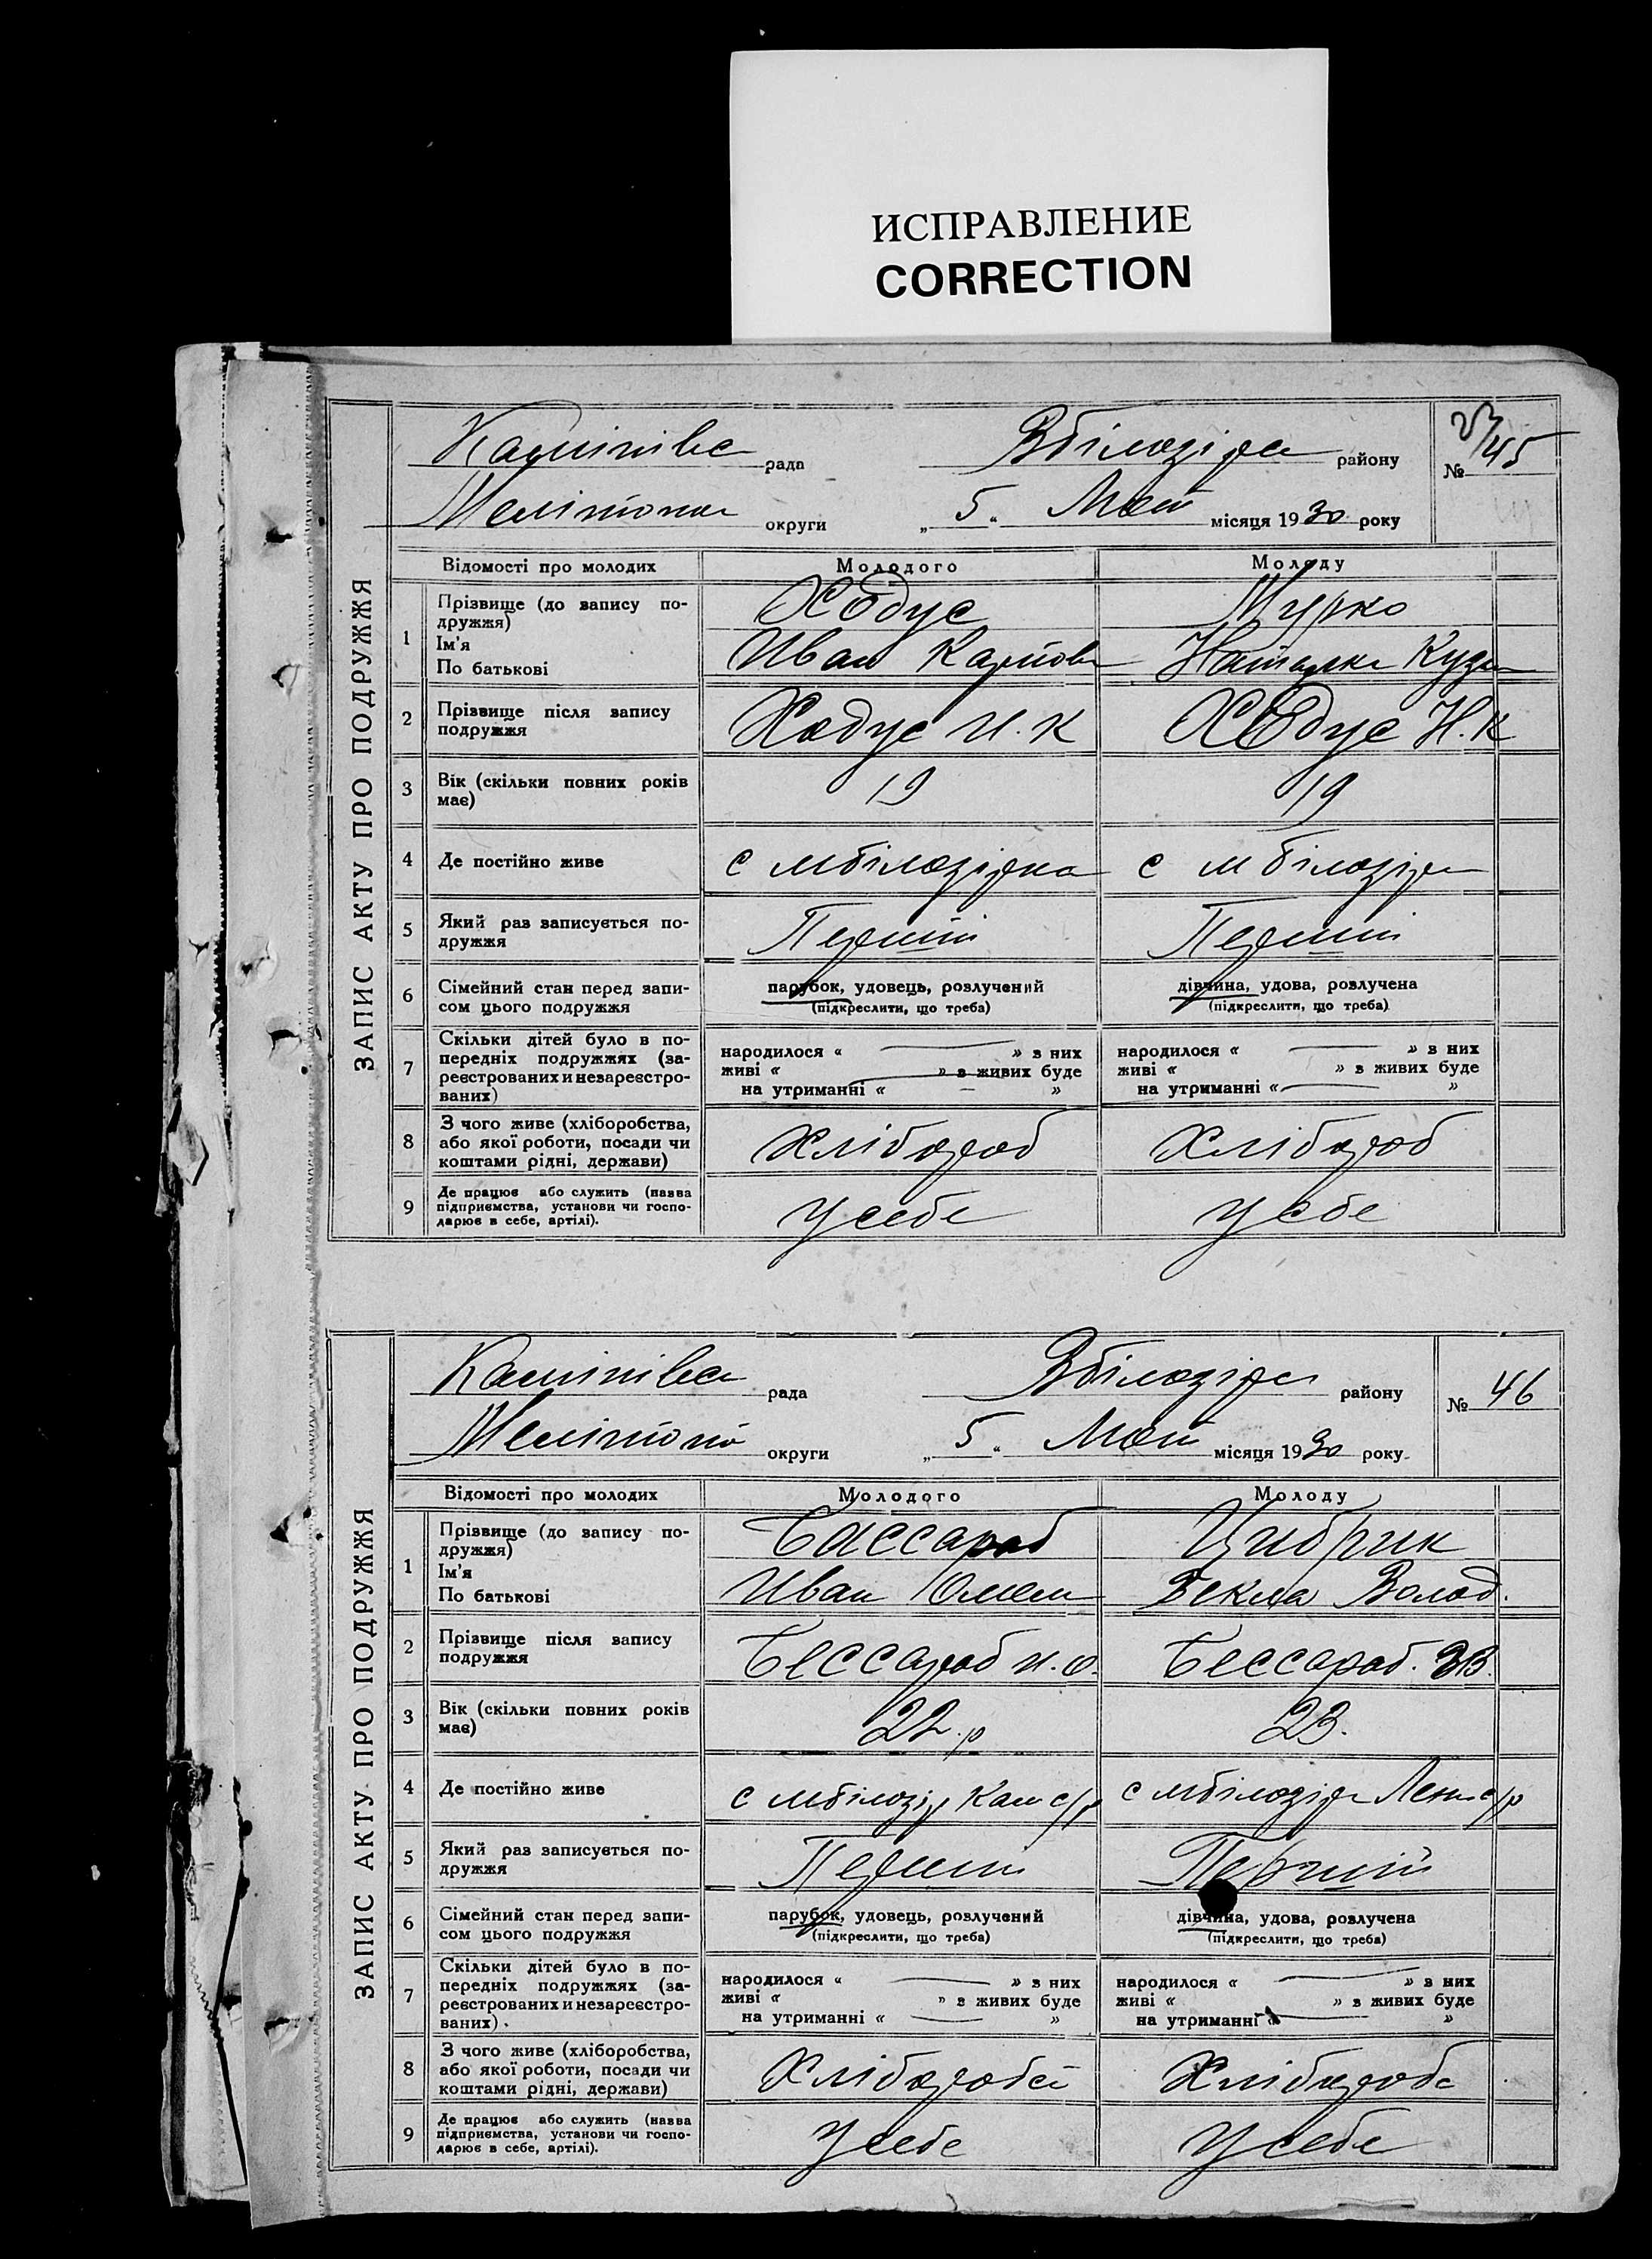 ИСПРАВЛЕНИЕ
CORRECTION
ЗАПИС АКТУ ПРО ПОДРУЖЖЯ
рада Вбілозірка району № 45
округи „ 5 “ Мая місяця 1930 року
Відомості про молодих Молодого Молоду
1 Прізвище (до запису по-
дружжя) Ходус Мурко
Ім'я Иван Карпов Наталка Кузм
По батькові
2 Прізвище після запису
подружжя Ходус И. К Ходус Н. К
3 Вік (скільки повних років
має) 19 19
4 Де постійно живе с мбілозірка с мбілозірка
5 Який раз записується по-
дружжя Перший Перший
6 Сімейний стан перед запи-
сом цього подружжя
парубок, удовець, розлучений
(підкреслити, що треба)
дівчина, удова, розлучена
(підкреслити, що треба)
7 Скільки дітей було в по-
передніх подружжях (за-
реєстрованих и незареєстро-
ваних)
народилося « — » з них
живі « » з живих буде
на утриманні « — »
народилося « — » з них
живі « » з живих буде
на утриманні « — »
8 З чого живе (хліборобства,
або якої роботи, посади чи
коштами рідні, держави) Хлібороб Хлібороб
9 Де працює або служить (назва
підприємства, установи чи госпо-
дарює в себе, артілі). У себе У себе
ЗАПИС АКТУ ПРО ПОДРУЖЖЯ
рада Вбілозірка району № 46
округи „ 5 “ Мая місяця 1930 року
Відомості про молодих Молодого Молоду
1 Прізвище (до запису по-
дружжя) Бессараб Цибрик
Ім'я Иван Омел Векла Волод.
По батькові
2 Прізвище після запису
подружжя Бессараб И. О. Бессараб. В.
3 Вік (скільки повних років
має) 22. р 23.
4 Де постійно живе с мбілозір Кам с/р с мбілозірка Лен с/р
5 Який раз записується по-
дружжя Перший Перший
6 Сімейний стан перед запи-
сом цього подружжя
парубок, удовець, розлучений
(підкреслити, що треба)
дівчина, удова, розлучена
(підкреслити, що треба)
7 Скільки дітей було в по-
передніх подружжях (за-
реєстрованих и незареєстро-
ваних).
народилося « — » з них
живі « » з живих буде
на утриманні « — »
народилося « — » з них
живі « » з живих буде
на утриманні « — »
8 З чого живе (хліборобства,
або якої роботи, посади чи
коштами рідні, держави) Хлібороб Хлібороб
9 Де працює або служить (назва
підприємства, установи чи госпо-
дарює в себе, артілі). У себе У себе